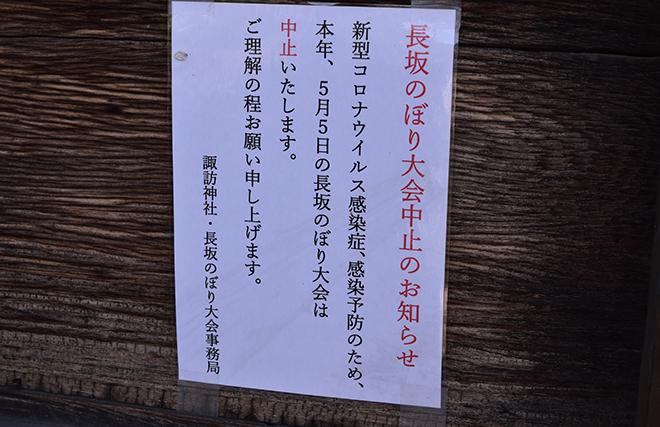 長坂のぼり大会中止のお知らせ
新型コロナウイルス感染症、感染予防のため、
本年、5月5日の長坂のぼり大会は
中止いたします。
ご理解の程お願い申し上げます。
諏訪神社・長坂のぼり大会事務局